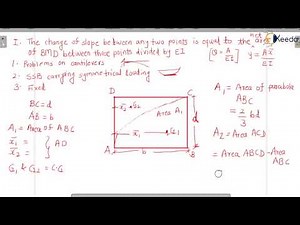 I. The change of slope between any two points is equal to the net area
of BMD between those points divided by EI
[θ = A/EI] ȳ = Ax̄/EI
Keeda
1. Problems on cantilevers
2. SSB carrying symmetrical loading
3. Fixed
BC = d
AB = b
A₁ = Area of ABC
x̄₁ =
x̄₂ =
} AD
G₁ & G₂ = C.G
D
C
x̄₂ G₂
Area A₁
x̄₁ G₁
d
A
b
B
A₁ = Area of parabola
ABC
= 2/3 bd
A₂ = Area ACD
= Area ABCD - Area
ABC